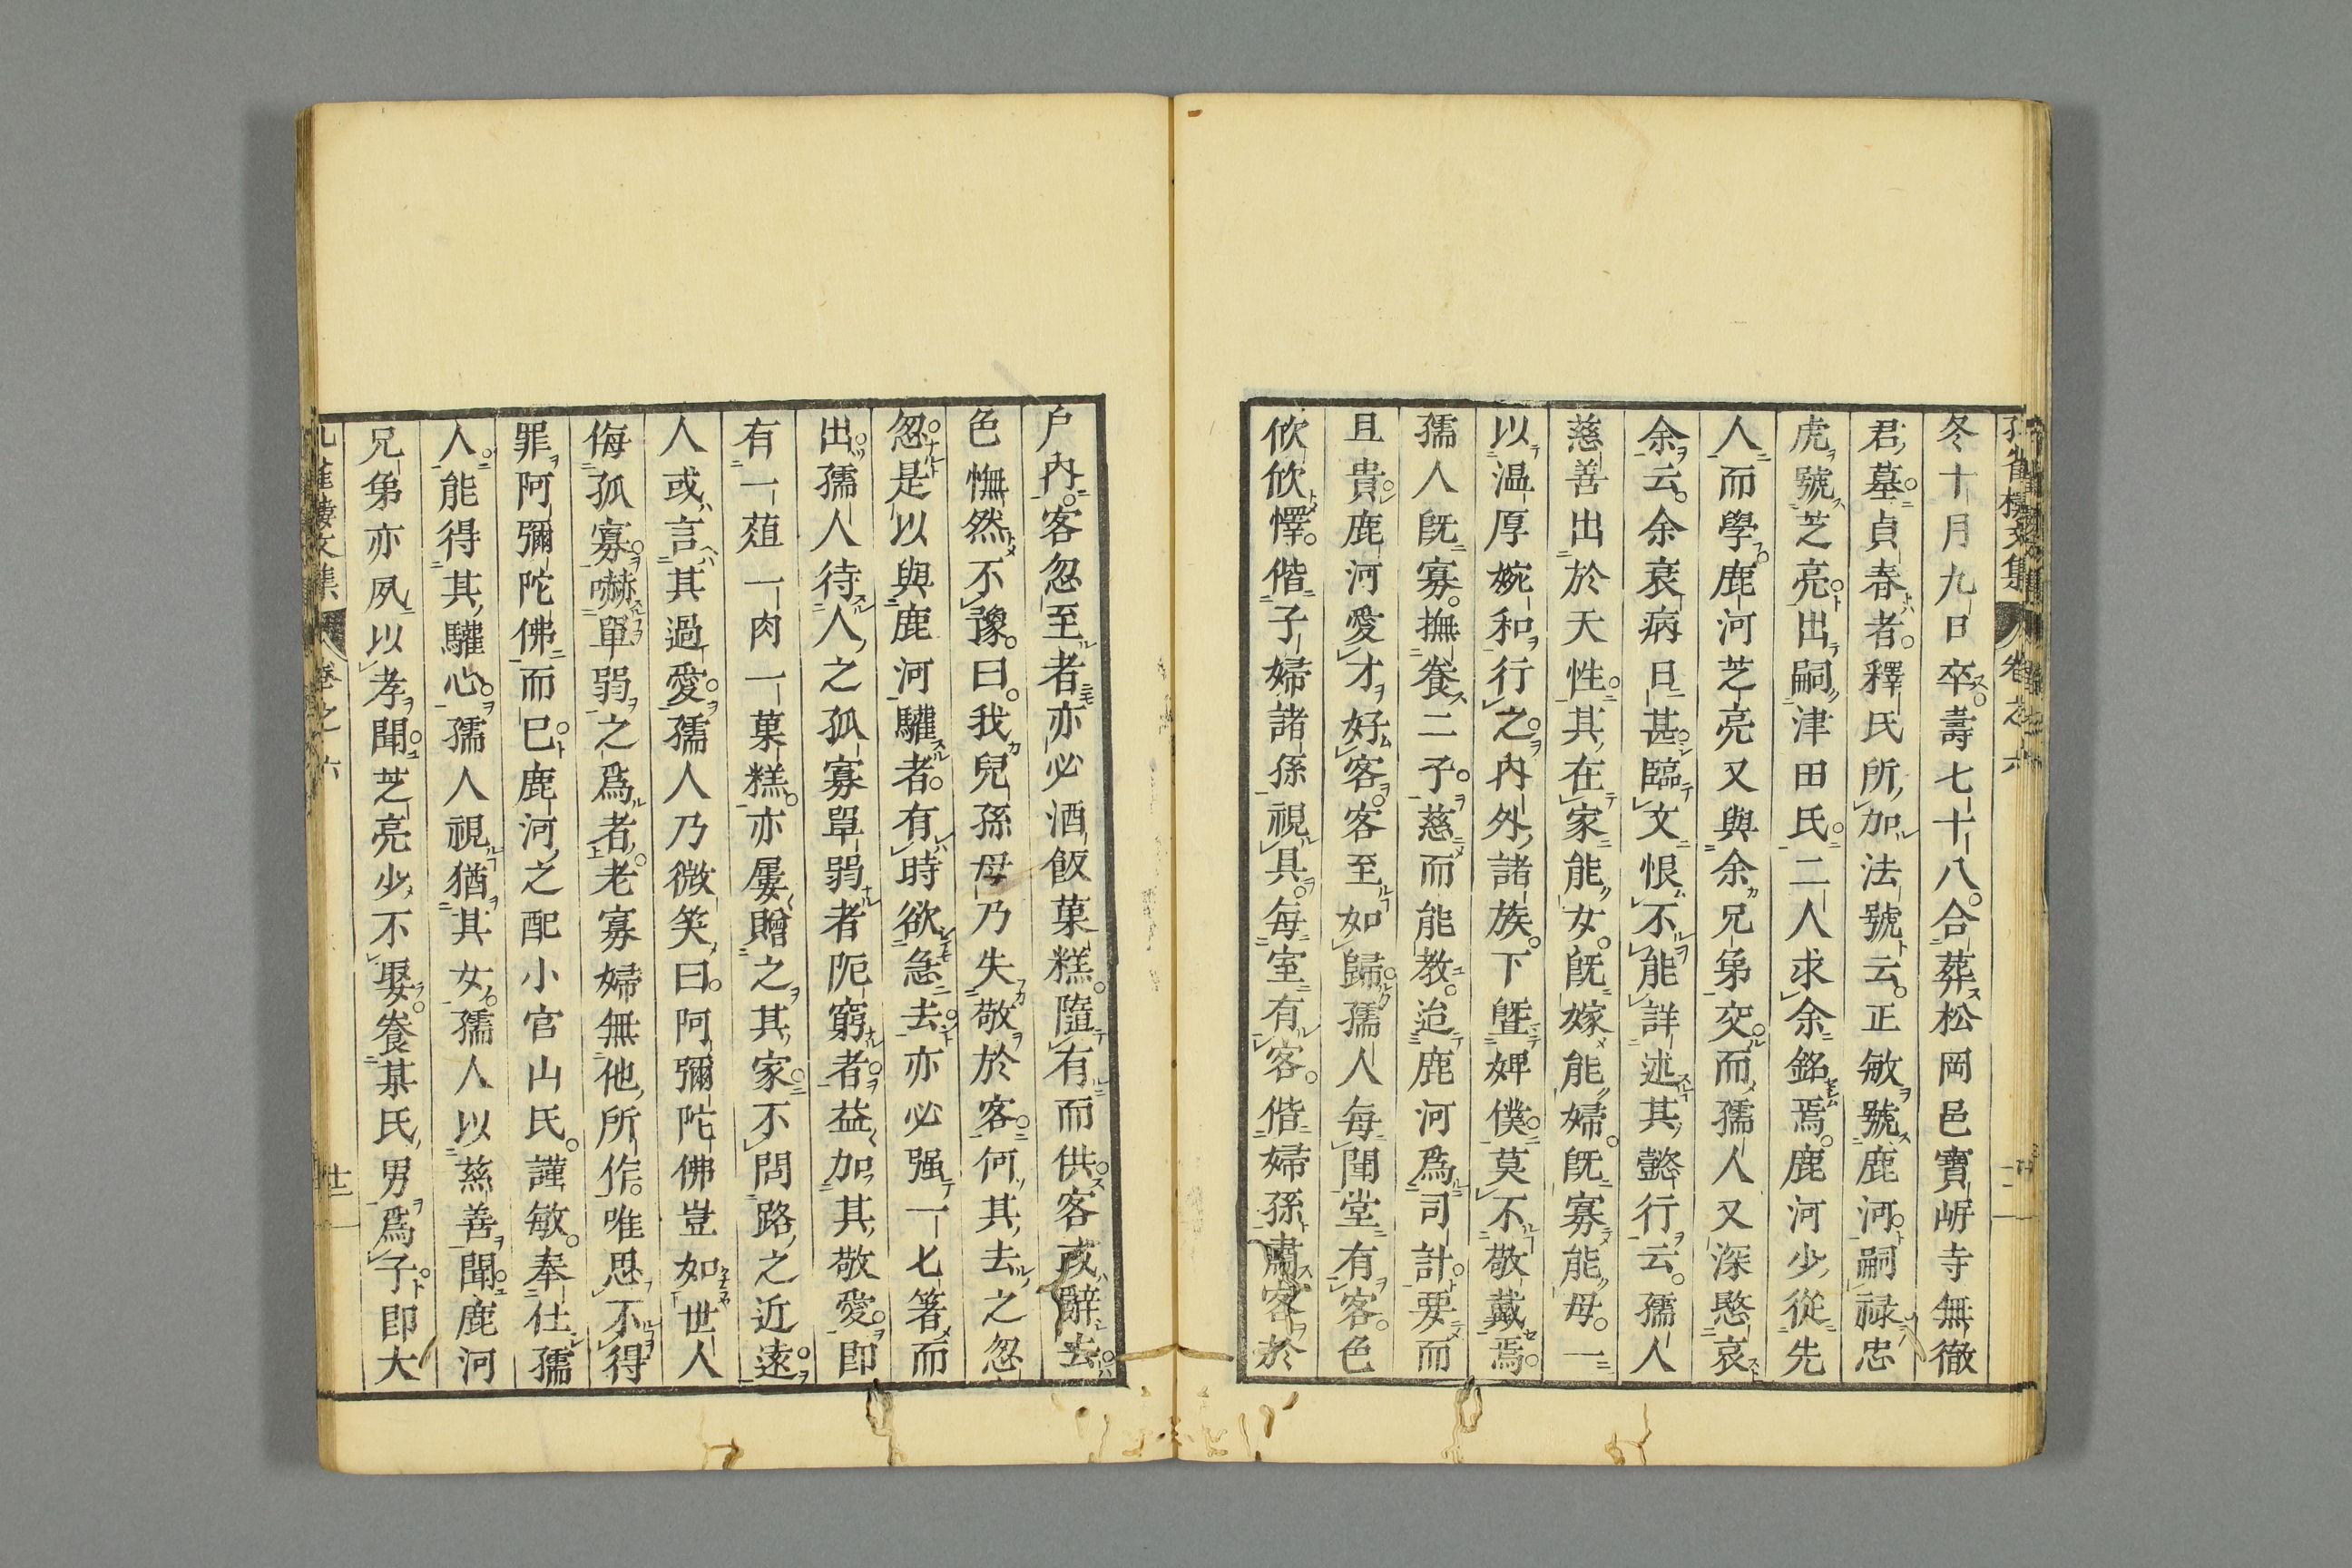 孔雀樓文集 卷之六
冬十月九日卒壽七十八合葬松岡邑寶㟁寺無徹
君墓貞春者釋氏所加法號云正敏號鹿河嗣祿忠
虎號芝亮出嗣津田氏二人求余銘焉鹿河少從先
人而學鹿河芝亮又與余兄弟交而孺人又深愍哀
余云余衰病日甚臨文恨不能詳述其懿行云孺人
慈善出於天性其在家能女既嫁能婦既寡能母一
以温厚婉和行之内外諸族下曁婢僕莫不敬戴焉
孺人既寡撫養二子慈而能教迨鹿河為司計要而
且貴鹿河愛才好客客至如歸孺人每聞堂有客色
欣欣懌偕子婦諸孫視具每室有客偕婦孫肅客於
户内客忽至者亦必酒飯菓糕隨有而供客或辭去
色憮然不豫曰我兒孫母乃失敬於客何其去之忽
忽是以與鹿河驩者有時欲急去亦必强一匕箸而
出孺人待人之孤寡單弱者阨窮者益加其敬愛即
有一葅一肉一菓糕亦屢贈之其家不問路之近遠
人或言其過愛孺人乃微笑曰阿彌陀佛豈如世人
侮孤寡嚇單弱之爲者老寡婦無他所作唯思不得
罪阿彌陀佛而已鹿河之配小官山氏謹敏奉仕孺
人能得其驩心孺人視猶其女孺人以慈善聞鹿河
兄弟亦夙以孝聞芝亮少不娶養某氏男爲子即大
孔雀樓文集 卷之六 十二